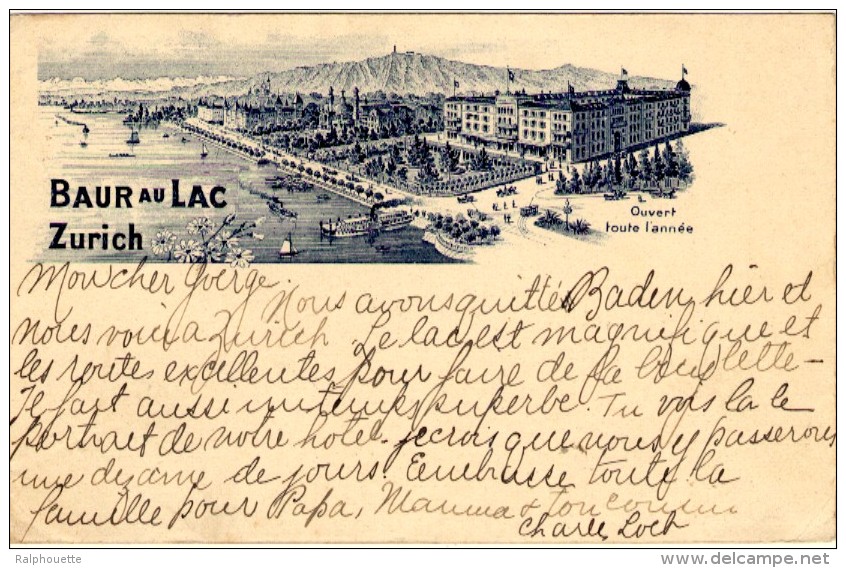 BAUR AU LAC
Zurich
Ouvert
toute l'année
Mon cher Goerge.
Nous avons quitté Baden hier et
nous voici a Zurich Le lac est magnifique et
les routes excellentes pour faire de la bicyclette -
Il fait aussi un temps superbe. Tu vois la le
portrait de notre hotel. je crois que nous y passerons
une dizaine de jours. Embrasse toute la
famille pour Papa, Maman & ton cousin
Charles
Ralphouette
https://www.delcampe.net